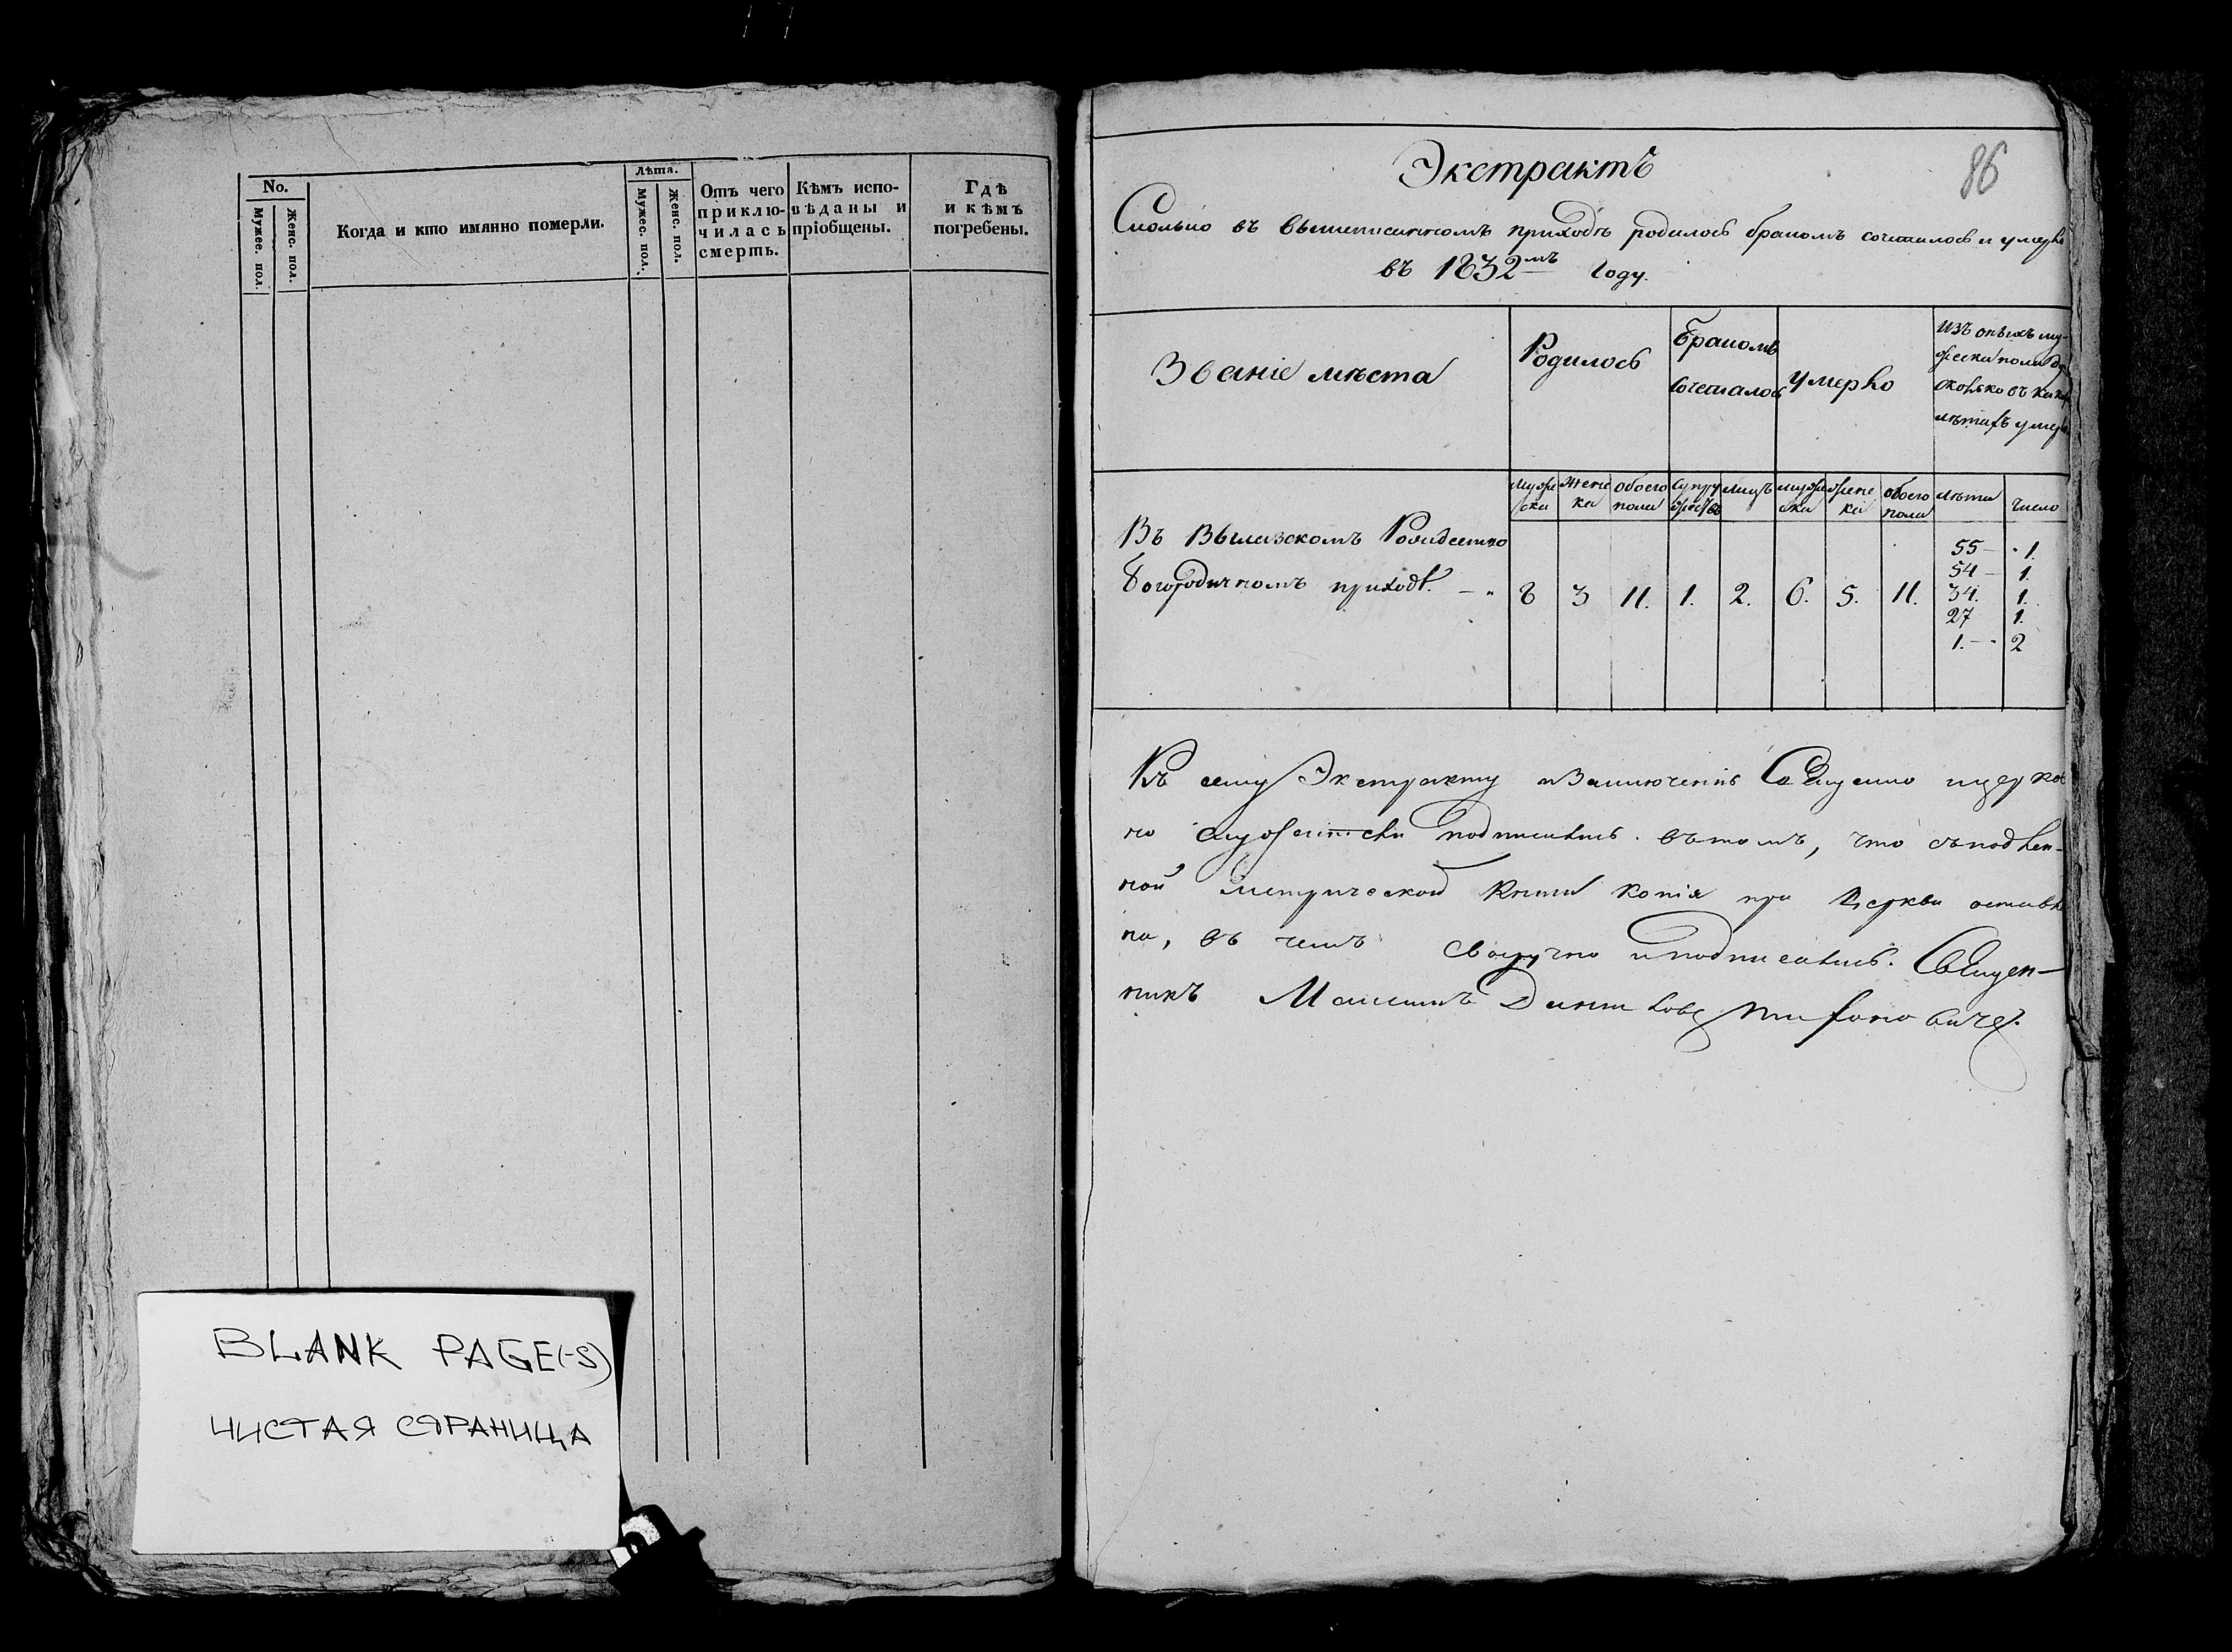 No.
Мужес. пол.
Женс. пол.
Когда и кто имянно померли.
Лѣта.
Мужес. пол.
Женс. пол.
Отъ чего
приклю-
чилась
смерть.
Кѣмъ испо-
вѣданы и
пріобщены.
Гдѣ
и кѣмъ
погребены.
BLANK PAGE(-S)
ЧИСТАЯ СТРАНИЦА
86
Экстрактъ
Сколько въ вышеписанномъ приходѣ родилось бракомъ сочеталось и умерло
въ 1832мъ Году.
Званіе мѣста
Родилось
Бракомъ
сочеталось
умерло
Изъ оныхъ му-
жеска пола
сколько въ каких
лѣтахъ умерло
Муже
ска
Женс
ка
обоего
пола
Супру
жествъ
лицъ
муже
ска
женс
ка
обоего
пола
лѣта
число
Въ Рождество
Богородичномъ приходѣ
8 3 11. 1. 2. 6. 5. 11.
55 1.
54 1.
34. 1.
27 1.
1. 2
Къ сему Экстракту Священно церков
но служители подписались въ томъ, что съ подлен-
ной метрической книги копія при Церкви оставле
на, въ чемъ своручно и подписались. Священ-
никъ